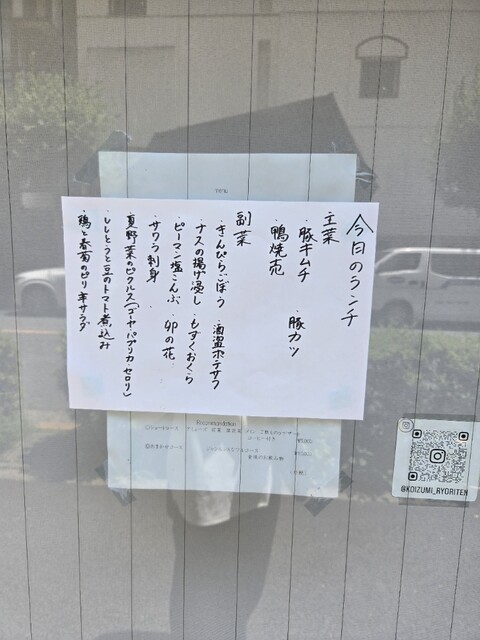 今日のランチ
主菜
・豚キムチ ・豚カツ
・鴨焼売
副菜
・きんぴらごぼう ・酒盗ポテサラ
・ナスの揚げ浸し ・もずくおくら
・ピーマン塩こんぶ ・卯の花
・サワラ刺身
・夏野菜のピクルス(ゴーヤ・パプリカ・セロリ)
・ししとうと豆のトマト煮込み
・鶏と春菊のピリ辛サラダ
Recommendation
@KOIZUMI_RYORITEN